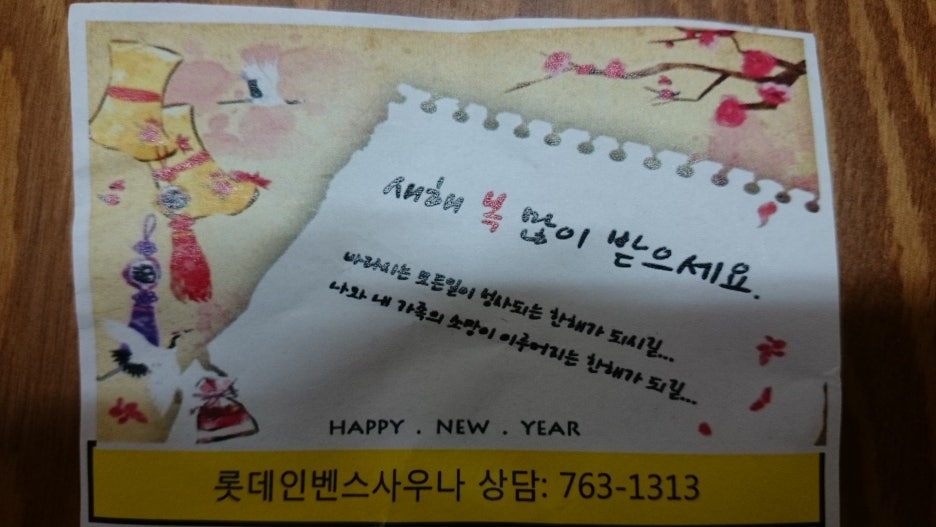 새해 복 많이 받으세요.
바라시는 모든일이 성사되는 한해가 되시길...
나와 내 가족의 소망이 이루어지는 한해가 되길...
HAPPY . NEW . YEAR
롯데인벤스사우나 상담: 763-1313